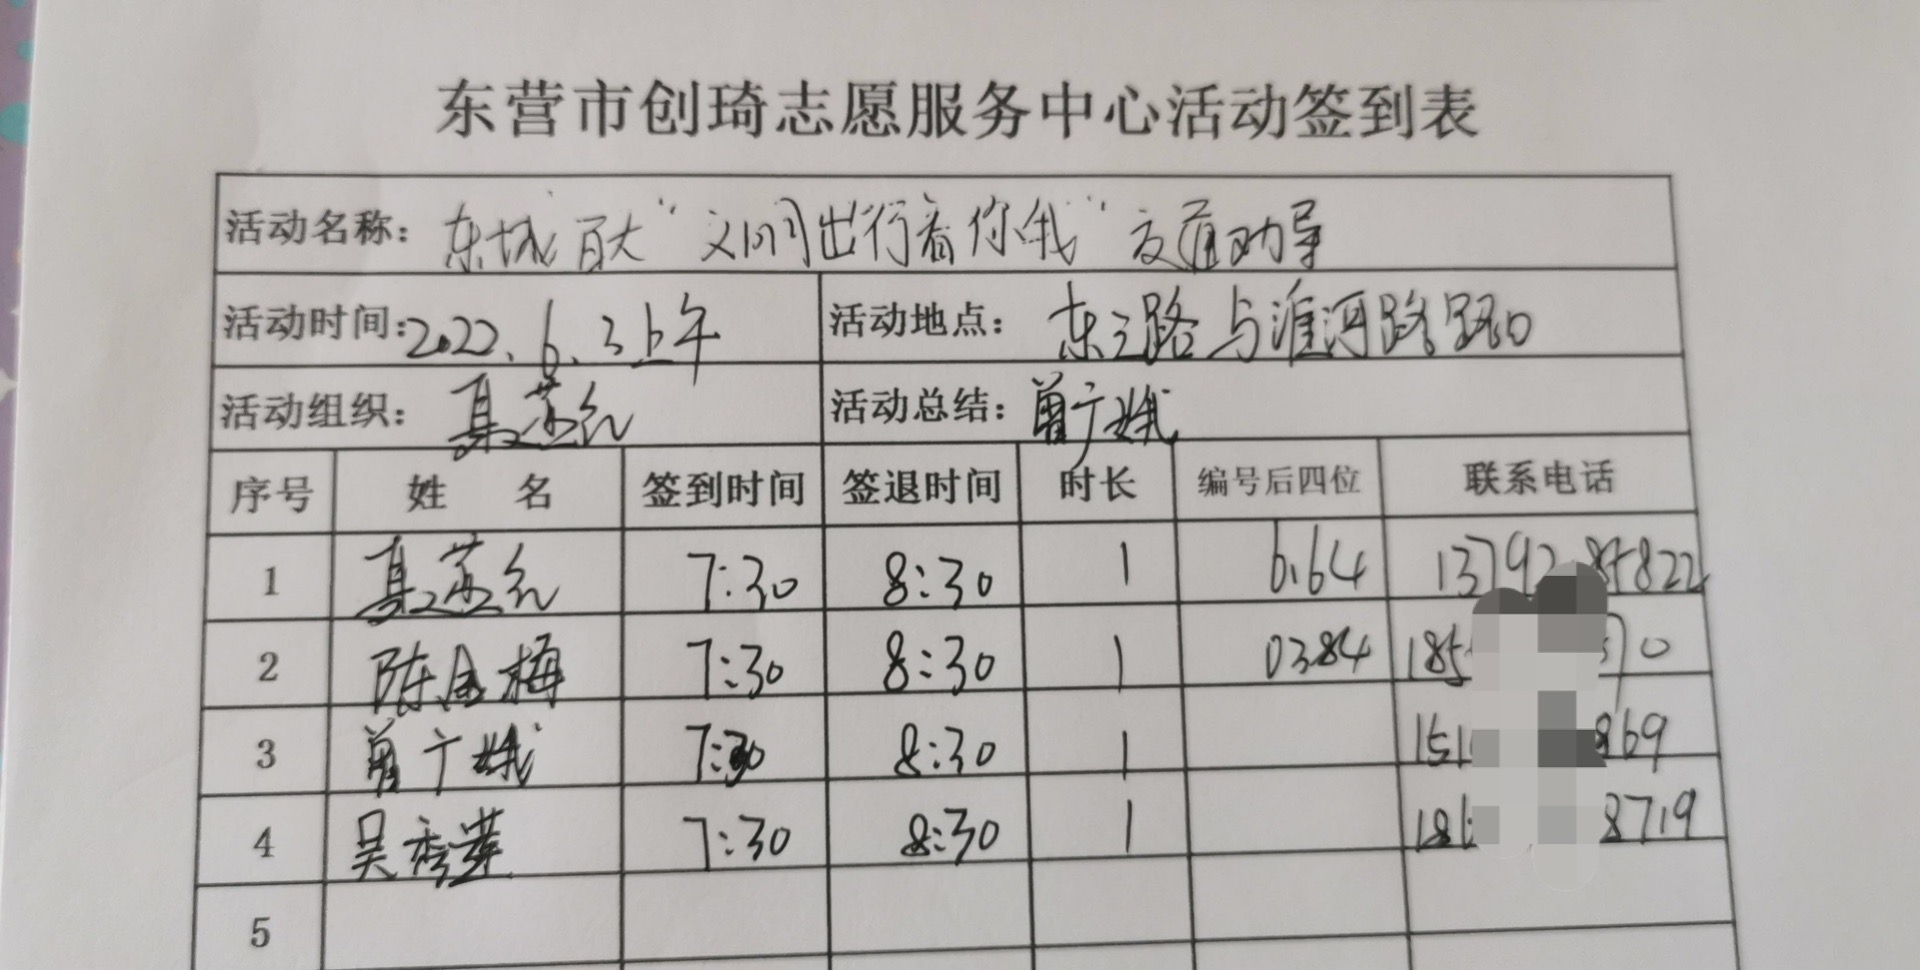 东营市创琦志愿服务中心活动签到表
活动名称: 东城百大"文明出行看你我"交通劝导
活动时间: 2022.6.3上午 活动地点: 东三路与淮河路路口
活动组织: 活动总结: 曾广娥
序号 姓名 签到时间 签退时间 时长 编号后四位 联系电话
1 7:30 8:30 1
2 陈金梅 7:30 8:30 1 0384
3 曾广娥 7:30 8:30 1
4 吴秀莲 7:30 8:30 1
5